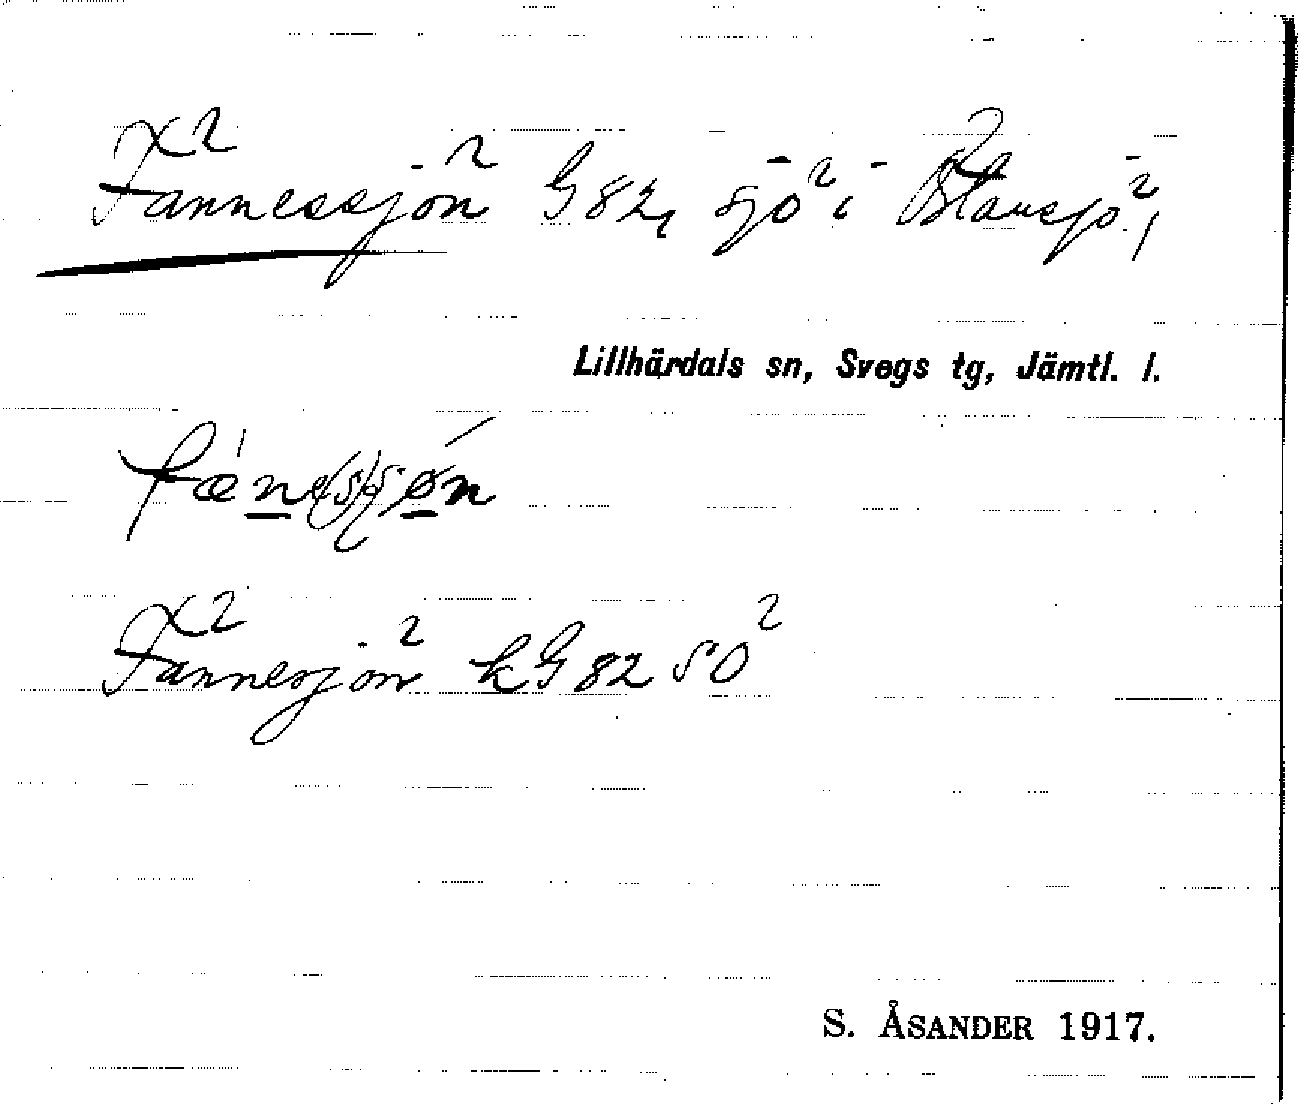 Fännessjön G 82, sjö i Blansjö,
Lillhärdals sn, Svegs tg, Jämtl. l.
Fännesjön kG 82 SO
S. ÅSANDER 1917.